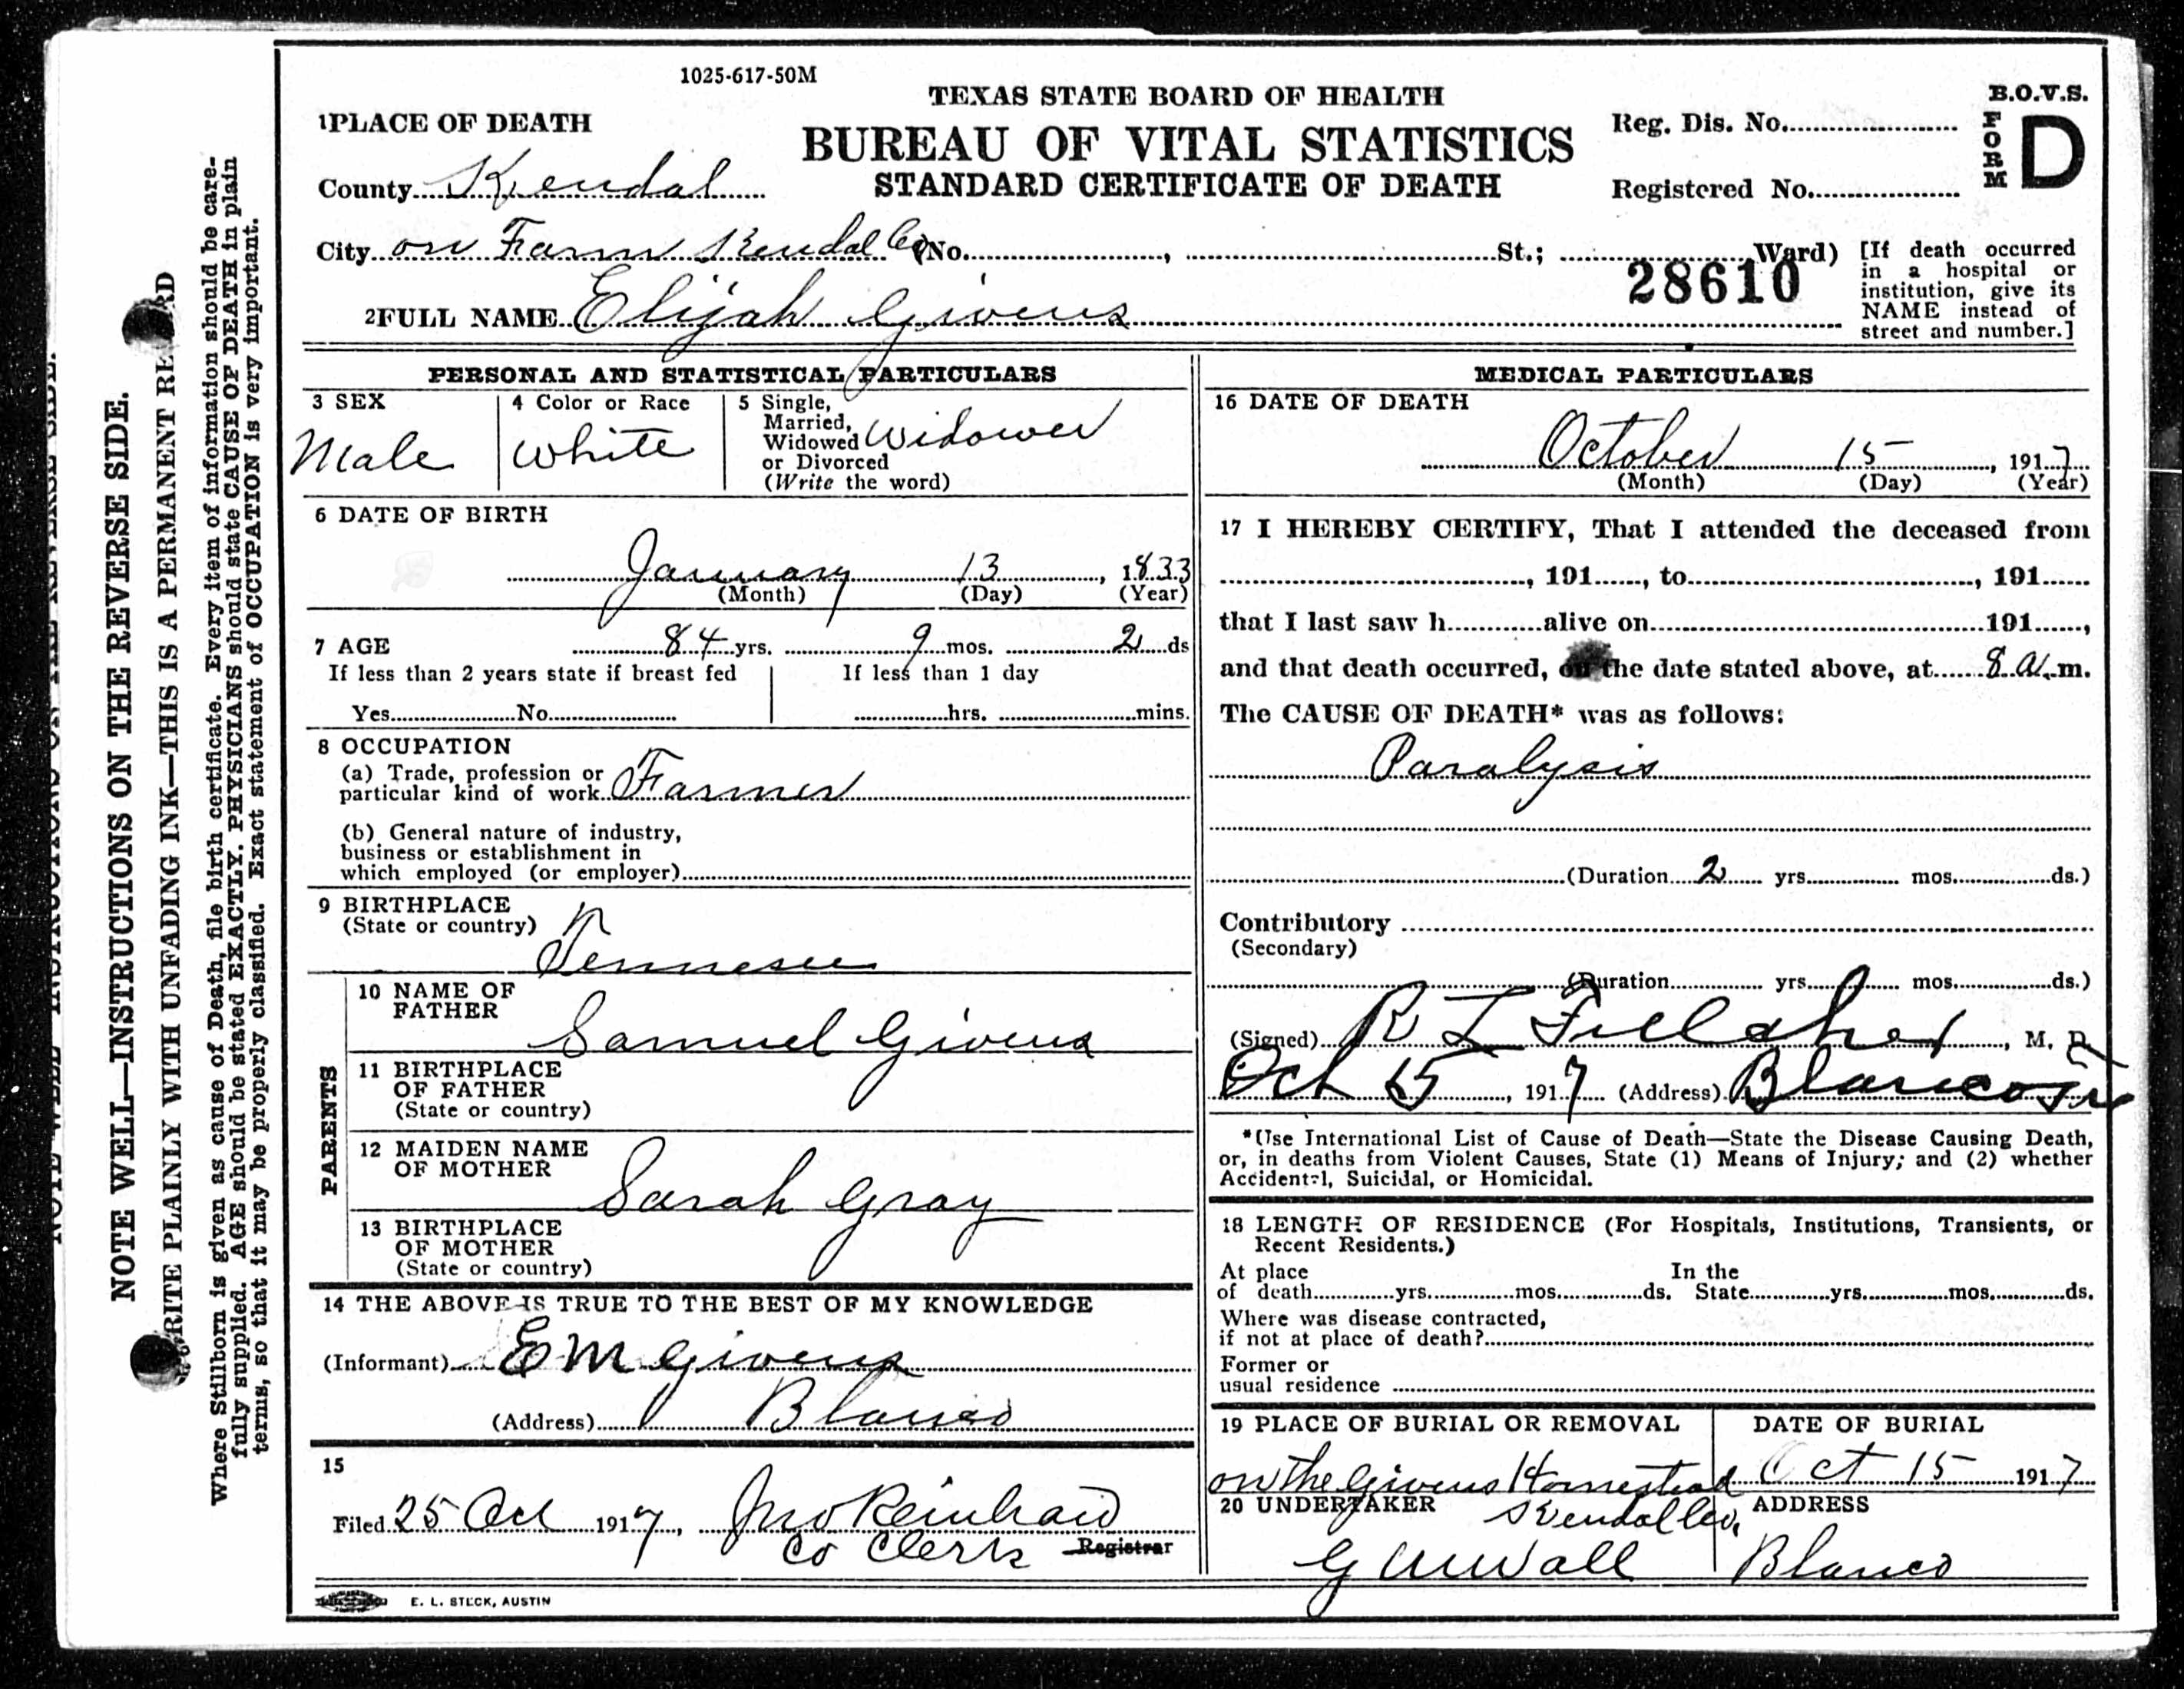 1025-617-50M
TEXAS STATE BOARD OF HEALTH
BUREAU OF VITAL STATISTICS
STANDARD CERTIFICATE OF DEATH
B.O.V.S.
FORM D
Reg. Dis. No.
Registered No.
1PLACE OF DEATH
County Kendal
City on Farm Kendal Co (No. , St.; Ward)
[If death occurred
in a hospital or
institution, give its
NAME instead of
street and number.]
28610
2FULL NAME Elijah Givens
PERSONAL AND STATISTICAL PARTICULARS
3 SEX
Male
4 Color or Race
White
5 Single,
Married,
Widowed
or Divorced
(Write the word)
Widower
6 DATE OF BIRTH
January 13, 1833
(Month) (Day) (Year)
7 AGE 84 yrs. 9 mos. 2 ds
If less than 2 years state if breast fed
Yes No
If less than 1 day
hrs. mins.
8 OCCUPATION
(a) Trade, profession or
particular kind of work Farmer
(b) General nature of industry,
business or establishment in
which employed (or employer)
9 BIRTHPLACE
(State or country)
Tennesee
PARENTS
10 NAME OF
FATHER
Samuel Givens
11 BIRTHPLACE
OF FATHER
(State or country)
12 MAIDEN NAME
OF MOTHER
Sarah Gray
13 BIRTHPLACE
OF MOTHER
(State or country)
14 THE ABOVE IS TRUE TO THE BEST OF MY KNOWLEDGE
(Informant) E M Givens
(Address) Blanco
15
Filed 25 Oct 1917, Jno Reinhard
Co Clerk Registrar
E. L. STECK, AUSTIN
MEDICAL PARTICULARS
16 DATE OF DEATH
October 15, 1917
(Month) (Day) (Year)
17 I HEREBY CERTIFY, That I attended the deceased from
, 191 , to , 191
that I last saw h alive on 191 ,
and that death occurred, on the date stated above, at 8 a.m.
The CAUSE OF DEATH* was as follows:
Paralysis
(Duration 2 yrs. mos. ds.)
Contributory
(Secondary)
(Duration yrs. mos. ds.)
(Signed) R L , M. D.
Oct 15, 1917 (Address) Blanco Tx
*(Use International List of Cause of Death—State the Disease Causing Death,
or, in deaths from Violent Causes, State (1) Means of Injury; and (2) whether
Accidental, Suicidal, or Homicidal.
18 LENGTH OF RESIDENCE (For Hospitals, Institutions, Transients, or
Recent Residents.)
At place
of death yrs. mos. ds.
In the
State yrs. mos. ds.
Where was disease contracted,
if not at place of death?
Former or
usual residence
19 PLACE OF BURIAL OR REMOVAL
on the Givens Homestead
Kendal Co,
DATE OF BURIAL
Oct 15 1917
20 UNDERTAKER
Wall
ADDRESS
Blanco
NOTE WELL—INSTRUCTIONS ON THE REVERSE SIDE.
WRITE PLAINLY WITH UNFADING INK—THIS IS A PERMANENT RECORD
Where Stillborn is given as cause of Death, file birth certificate. Every item of information should be care-
fully supplied. AGE should be stated EXACTLY. PHYSICIANS should state CAUSE OF DEATH in plain
terms, so that it may be properly classified. Exact statement of OCCUPATION is very important.